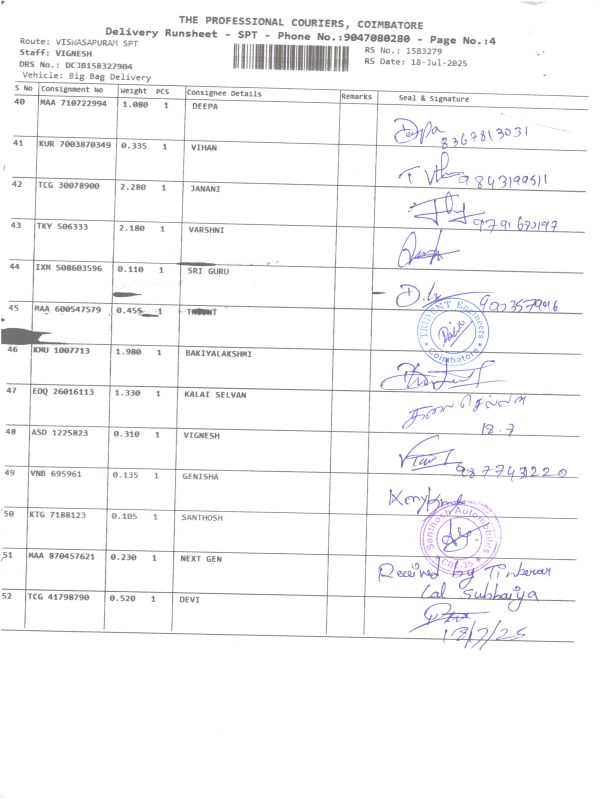 THE PROFESSIONAL COURIERS, COIMBATORE
Delivery Runsheet - SPT - Phone No.:9047080280 - Page No.:4
Route: VISWASAPURAM SPT
RS No.: 1583279
Staff: VIGNESH
RS Date: 18-Jul-2025
DRS No.: DCJB158327904
Vehicle: Big Bag Delivery
S No Consignment No Weight PCS Consignee Details Remarks Seal & Signature
40 MAA 710722994 1.080 1 DEEPA
Deepa 8367813031
41 KUR 7003870349 0.335 1 VIHAN
9843199511
42 TCG 30078900 2.280 1 JANANI
9791670197
43 TKY 506333 2.180 1 VARSHNI
44 IXM 508603596 0.110 1 SRI GURU
900357996
45 MAA 600547579 0.455 1
TRIDENT Engineers
Coimbatore
46 KMU 1007713 1.980 1 BAKIYALAKSHMI
47 EDQ 26016113 1.330 1 KALAI SELVAN
18.7
48 ASD 1225823 0.310 1 VIGNESH
9877431220
49 VNB 695961 0.135 1 GENISHA
50 KTG 7188123 0.105 1 SANTHOSH
Santhosh Automobiles
CBE-35
51 MAA 870457621 0.230 1 NEXT GEN
Received by Tinkerar
Lal Subbaiya
52 TCG 41798790 0.520 1 DEVI
18/7/25